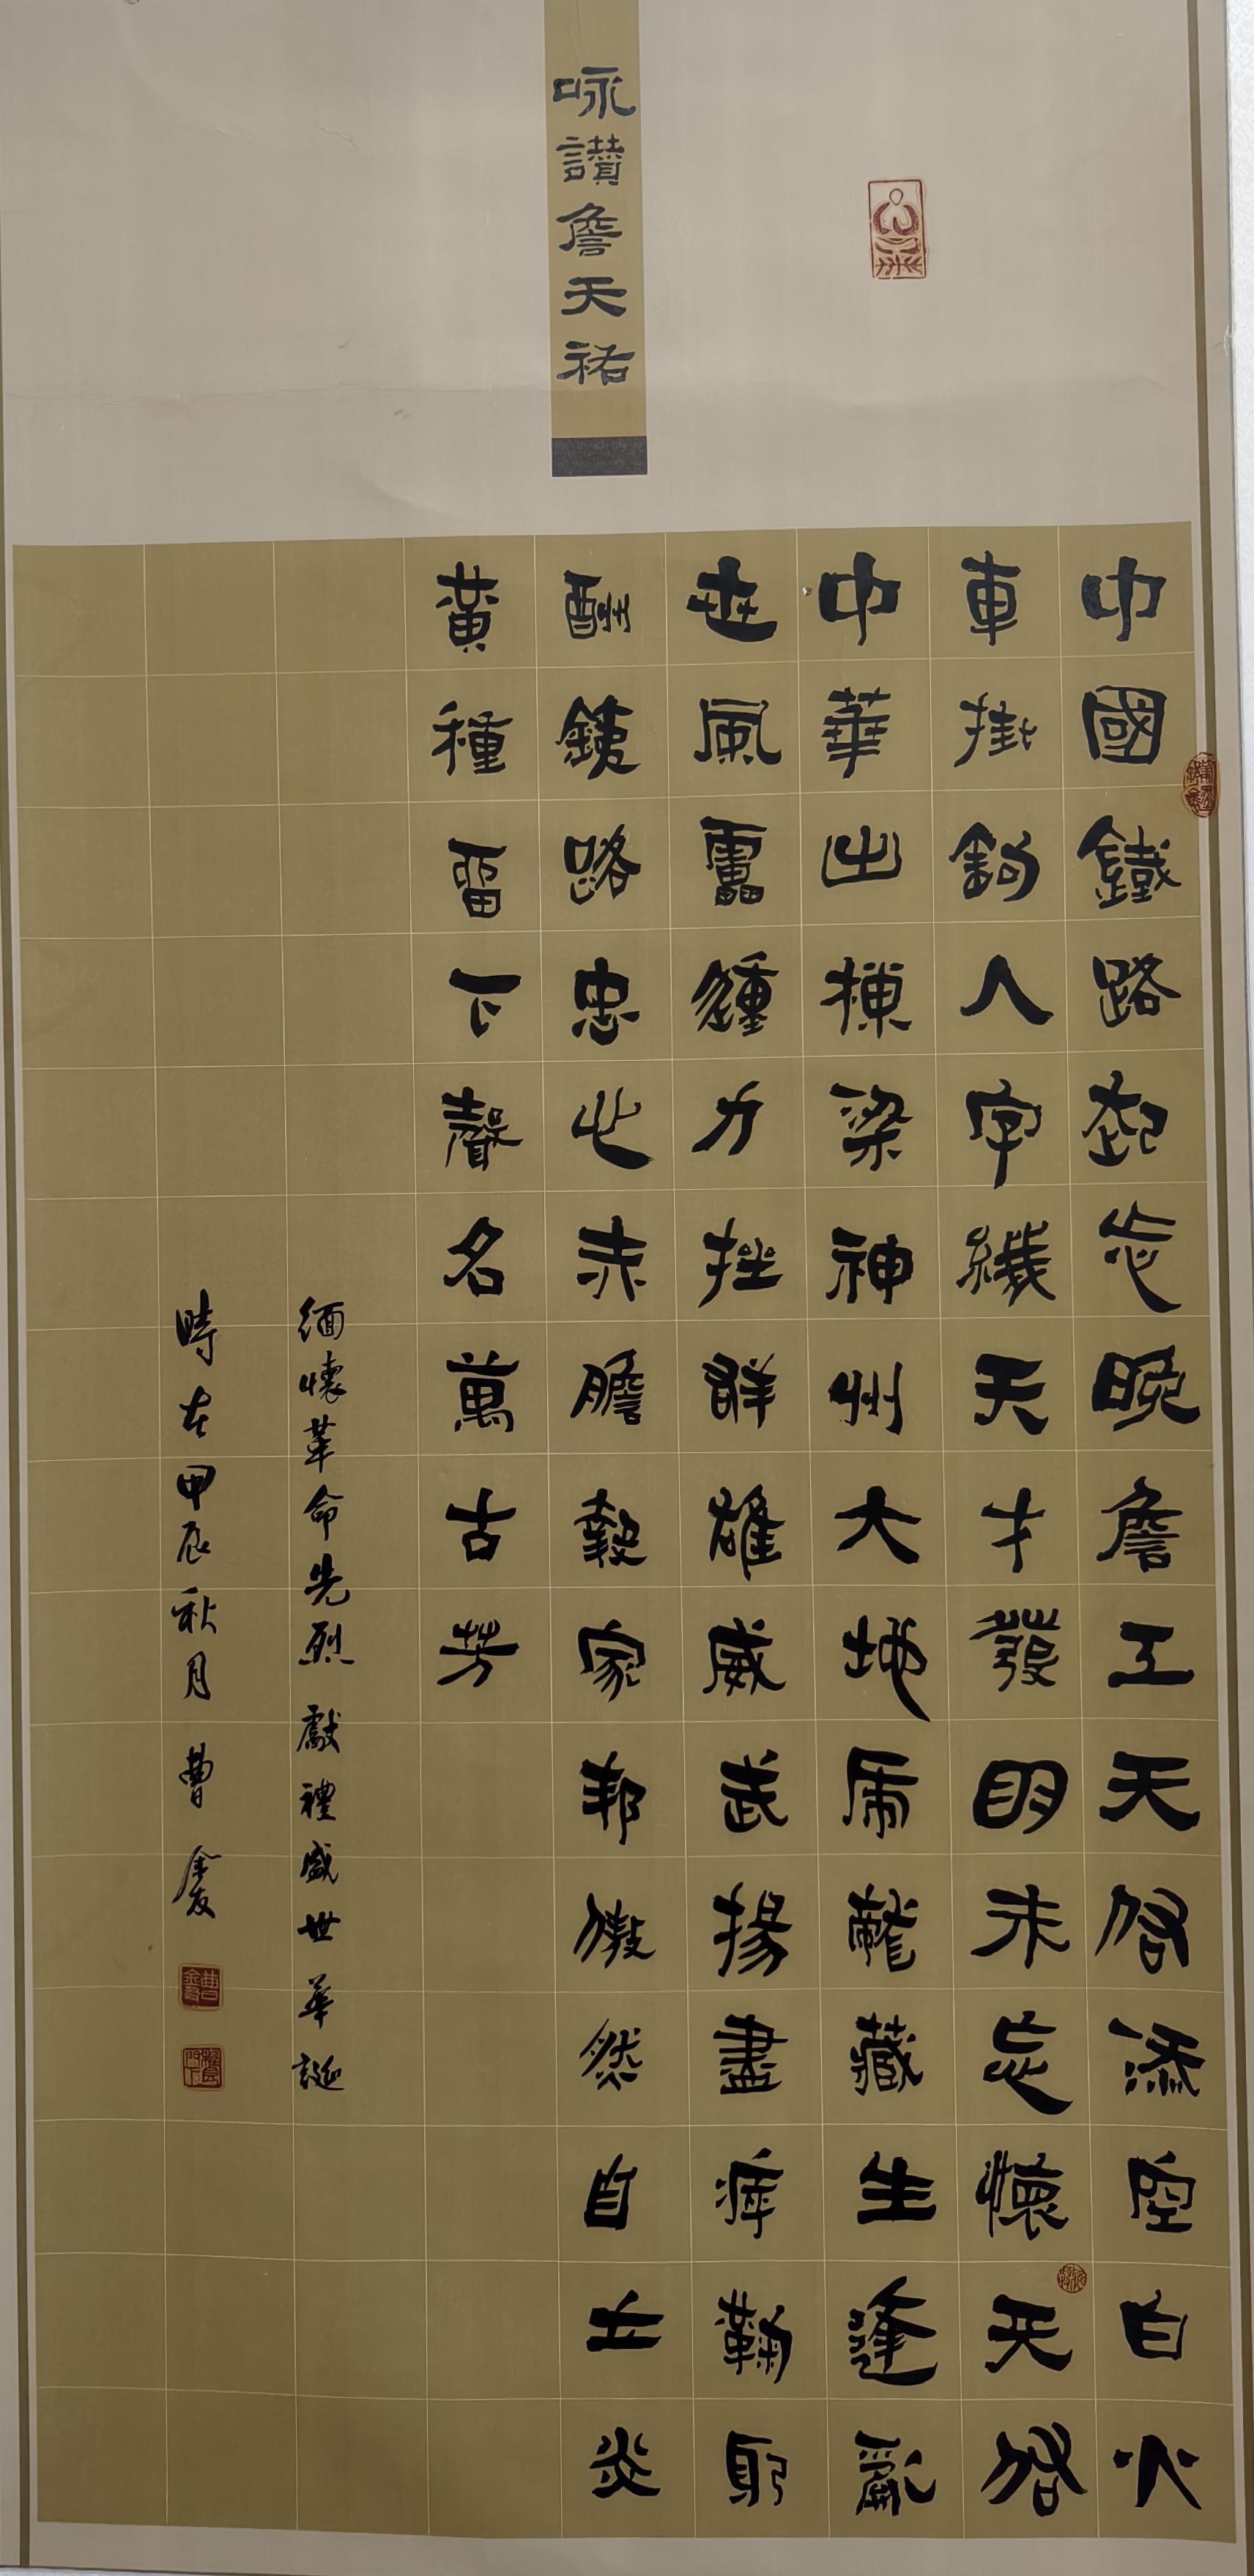 咏讃詹天祐
中國鐵路起晚詹工天啓添空白火
車掛鈎人字綫天才發明未忘懷天啓
中華出棟梁神州大地虎龍藏生逢亂
世風雷動力挫群雄威武揚盡瘁鞠躬
酬鐵路忠心赤膽報家邦傲然自立炎
黄種留下聲名萬古芳
緬懷革命先烈 獻禮盛世華誕
時在甲辰秋月 曹